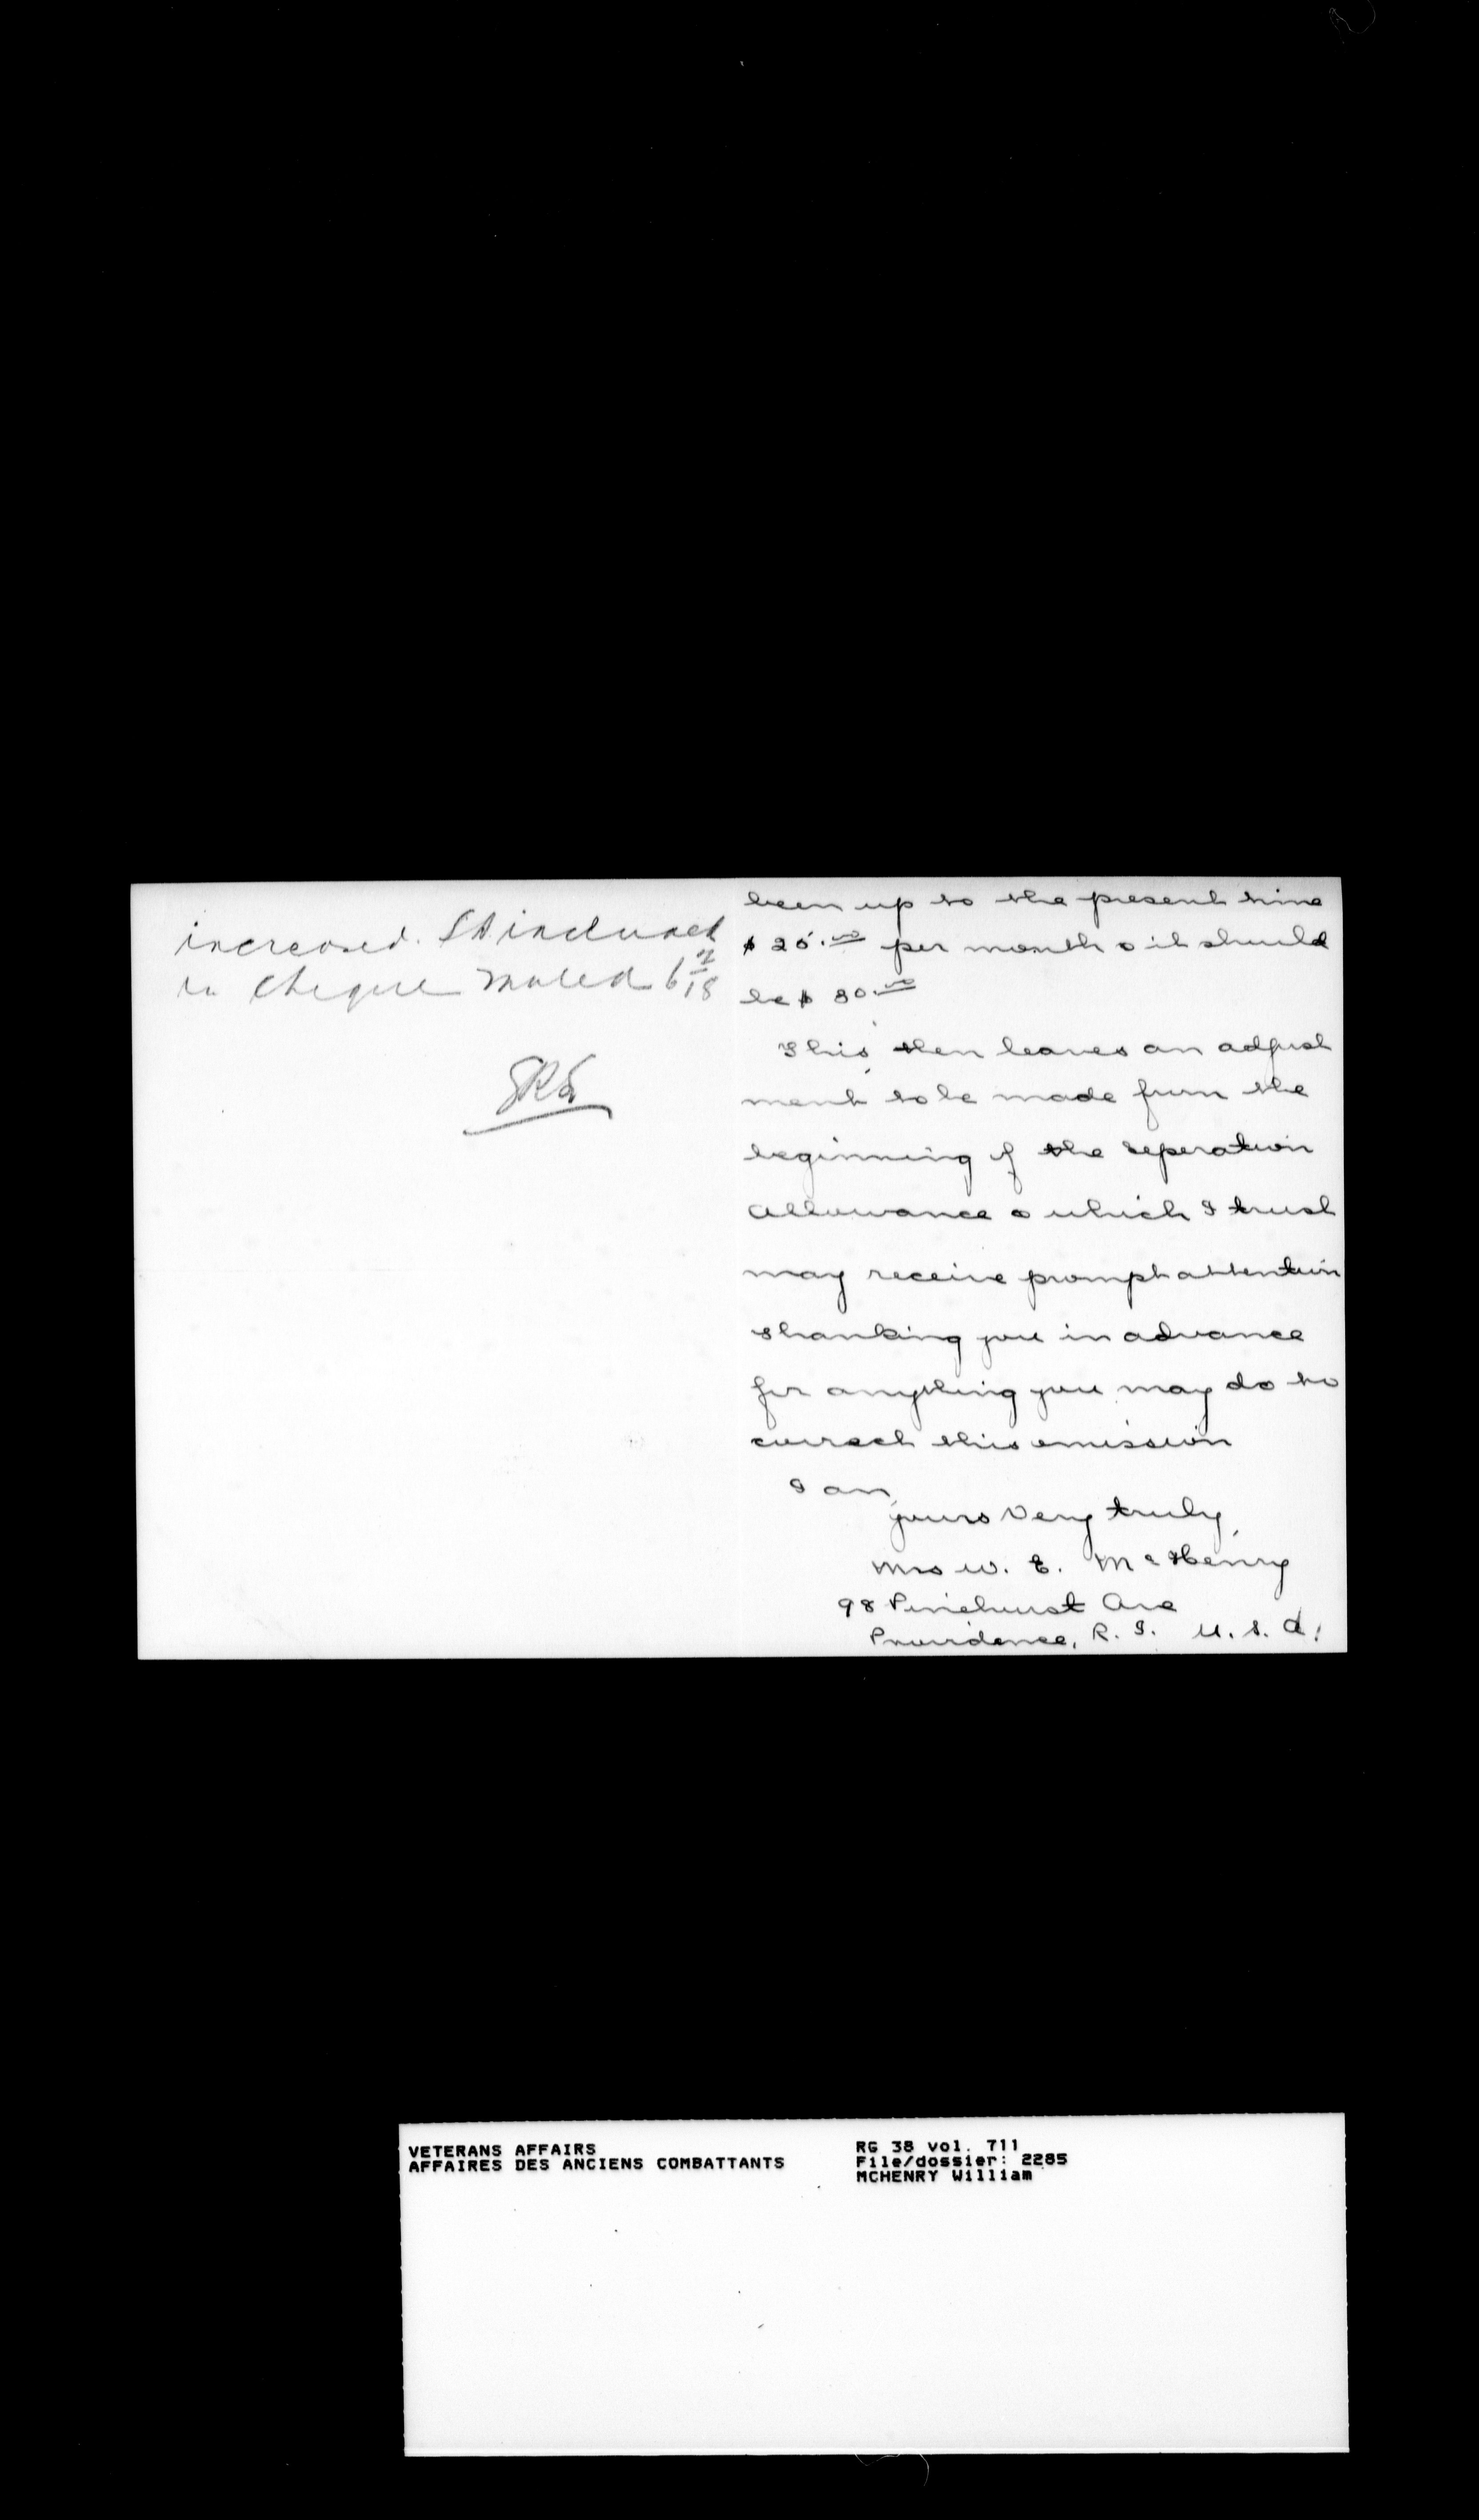 increased. SA included
in cheque mailed 6/2/18
been up to the present time
$ 25.00 per month & it should
be $ 30.00
This then leaves an adjust
ment to be made from the
beginning of the seperation
allowance & which I trust
may receive prompt attention
thanking you in advance
for anything you may do to
correct this omission
I am,
yours very truly,
Mrs W. E. McHenry
98 Pinehurst Ave
Providence, R. I. U. S. A.
VETERANS AFFAIRS
AFFAIRES DES ANCIENS COMBATTANTS
RG 38 vol. 711
File/dossier: 2285
MCHENRY William